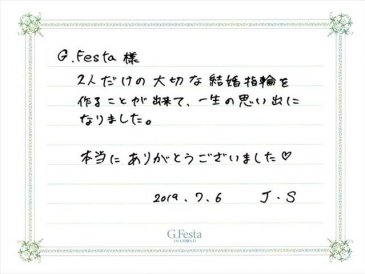 G.Festa 様
2人だけの大切な結婚指輪を
作ることが出来て、一生の思い出に
なりました。
本当にありがとうございました♡
2019.7.6 J.S
G.Festa